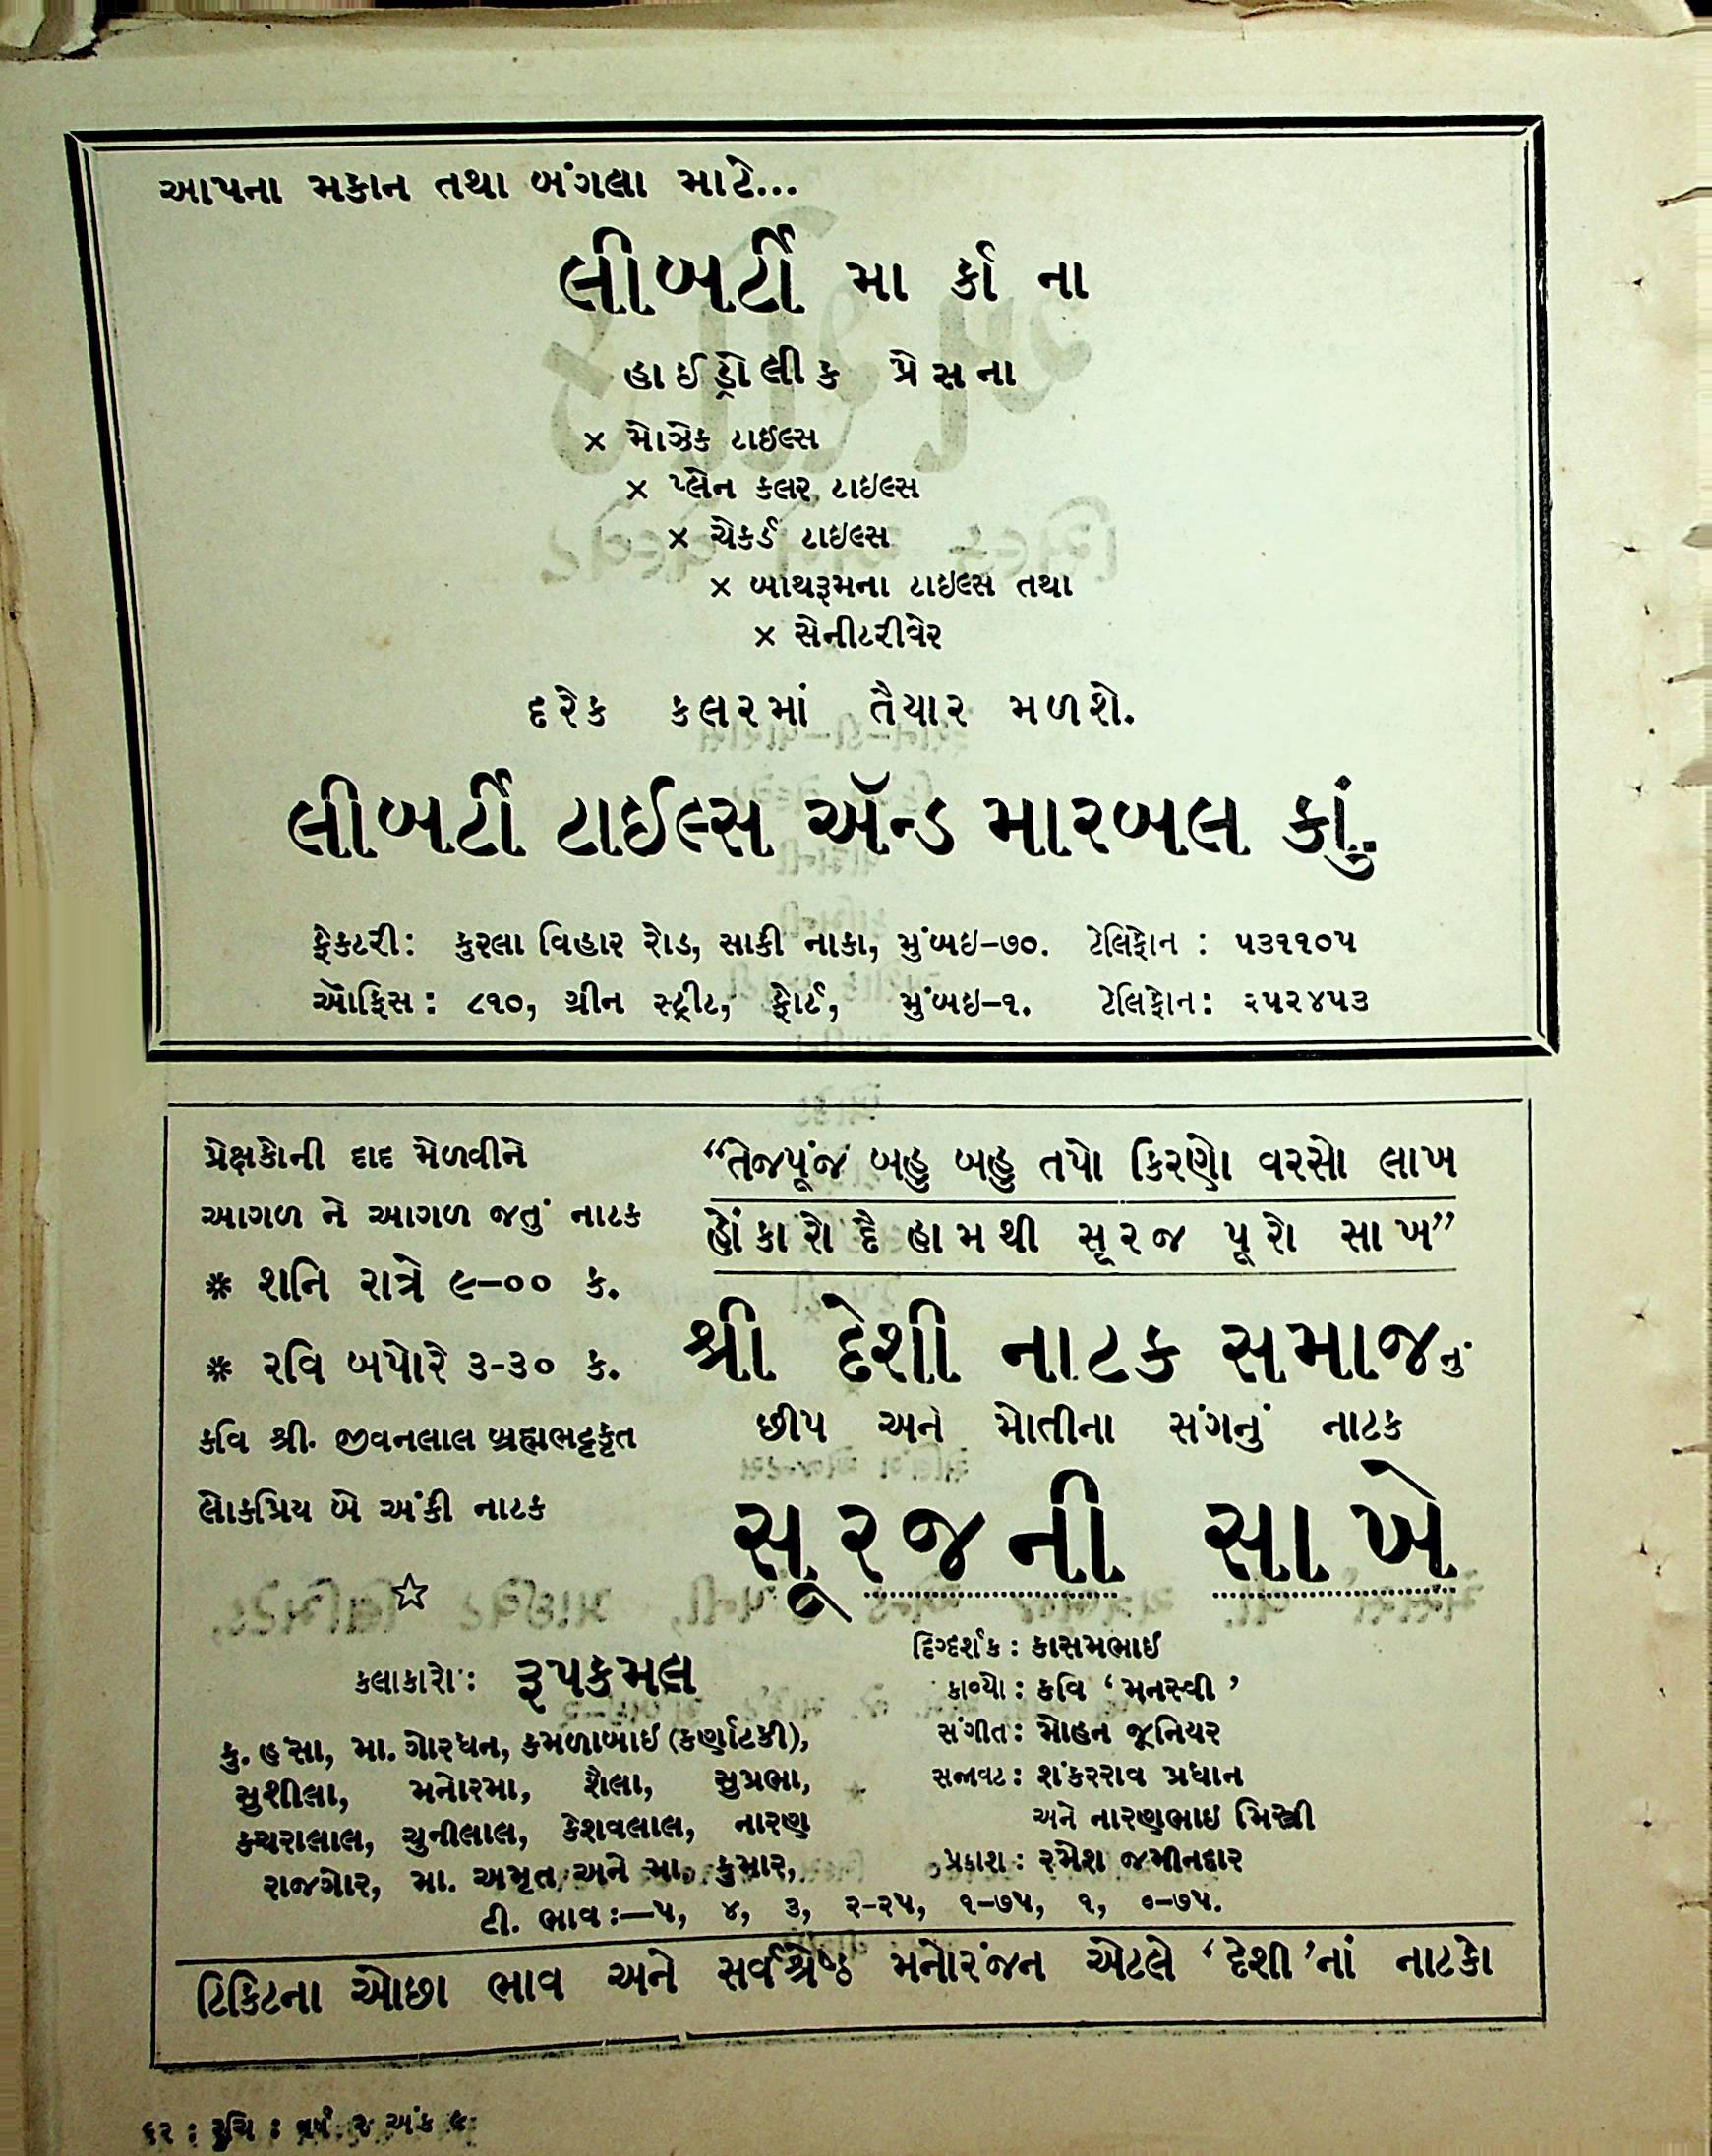 આપના મકાન તથા બંગલા માટે...
લીબર્ટી માર્કાના
હાઈડ્રોલીક પ્રેસના
× મોઝેક ટાઈલ્સ
× પ્લેન કલર ટાઇલ્સ
× ચેકર્ડ ટાઇલ્સ
× બાથરૂમના ટાઇલ્સ તથા
× સેનીટરીવેર
દરેક કલરમાં તૈયાર મળશે.
લીબર્ટી ટાઈલ્સ ઍન્ડ મારબલ કાું.
ફેક્ટરી: કુરલા વિહાર રોડ, સાકી નાકા, મુંબઇ-૭૦. ટેલિફોન : ૫૩૧૧૦૫
ઑફિસ : ૮૧૦, ગ્રીન સ્ટ્રીટ, ફોર્ટ, મુંબઇ-૧. ટેલિફોન: ૨૫૨૪૫૩
પ્રેક્ષકોની દાદ મેળવીને
આગળ ને આગળ જતું નાટક
* શનિ રાત્રે ૯-૦૦ ક.
* રવિ બપોરે ૩-૩૦ ક.
કવિ શ્રી. જીવનલાલ બ્રહ્મભટ્ટકૃત
લોકપ્રિય બે અંકી નાટક
“તેજપૂંજ બહુ બહુ તપો કિરણો વરસો લાખ
હોંકારો દૈ હામથી સૂરજ પૂરો સાખ”
શ્રી દેશી નાટક સમાજનું
છીપ અને મોતીના સંગનું નાટક
સૂરજની સાખે
કલાકારો : રૂપકમલ
કુ. હંસા, મા. ગોરધન, કમળાબાઇ (કર્ણાટકી),
સુશીલા, મનોરમા, શૈલા, સુપ્રભા,
કચરાલાલ, ચુનીલાલ, કેશવલાલ, નારણ
રાજગોર, મા. અમૃત અને મા. કુમાર,
દિગ્દર્શક : કાસમભાઇ
કાવ્યો : કવિ ‘મનસ્વી’
સંગીત : મોહન જૂનિયર
સજાવટ : શંકરરાવ પ્રધાન
અને નારણભાઇ મિસ્ત્રી
પ્રકાશ : રમેશ જમીનદાર
ટી. ભાવ :—૫, ૪, ૩, ૨-૨૫, ૧-૭૫, ૧, ૦-૭૫.
ટિકિટના ઓછા ભાવ અને સર્વશ્રેષ્ઠ મનોરંજન એટલે ‘દેશી’નાં નાટકો
૬૨ : રુચિ : વર્ષ ૨ અંક ૯